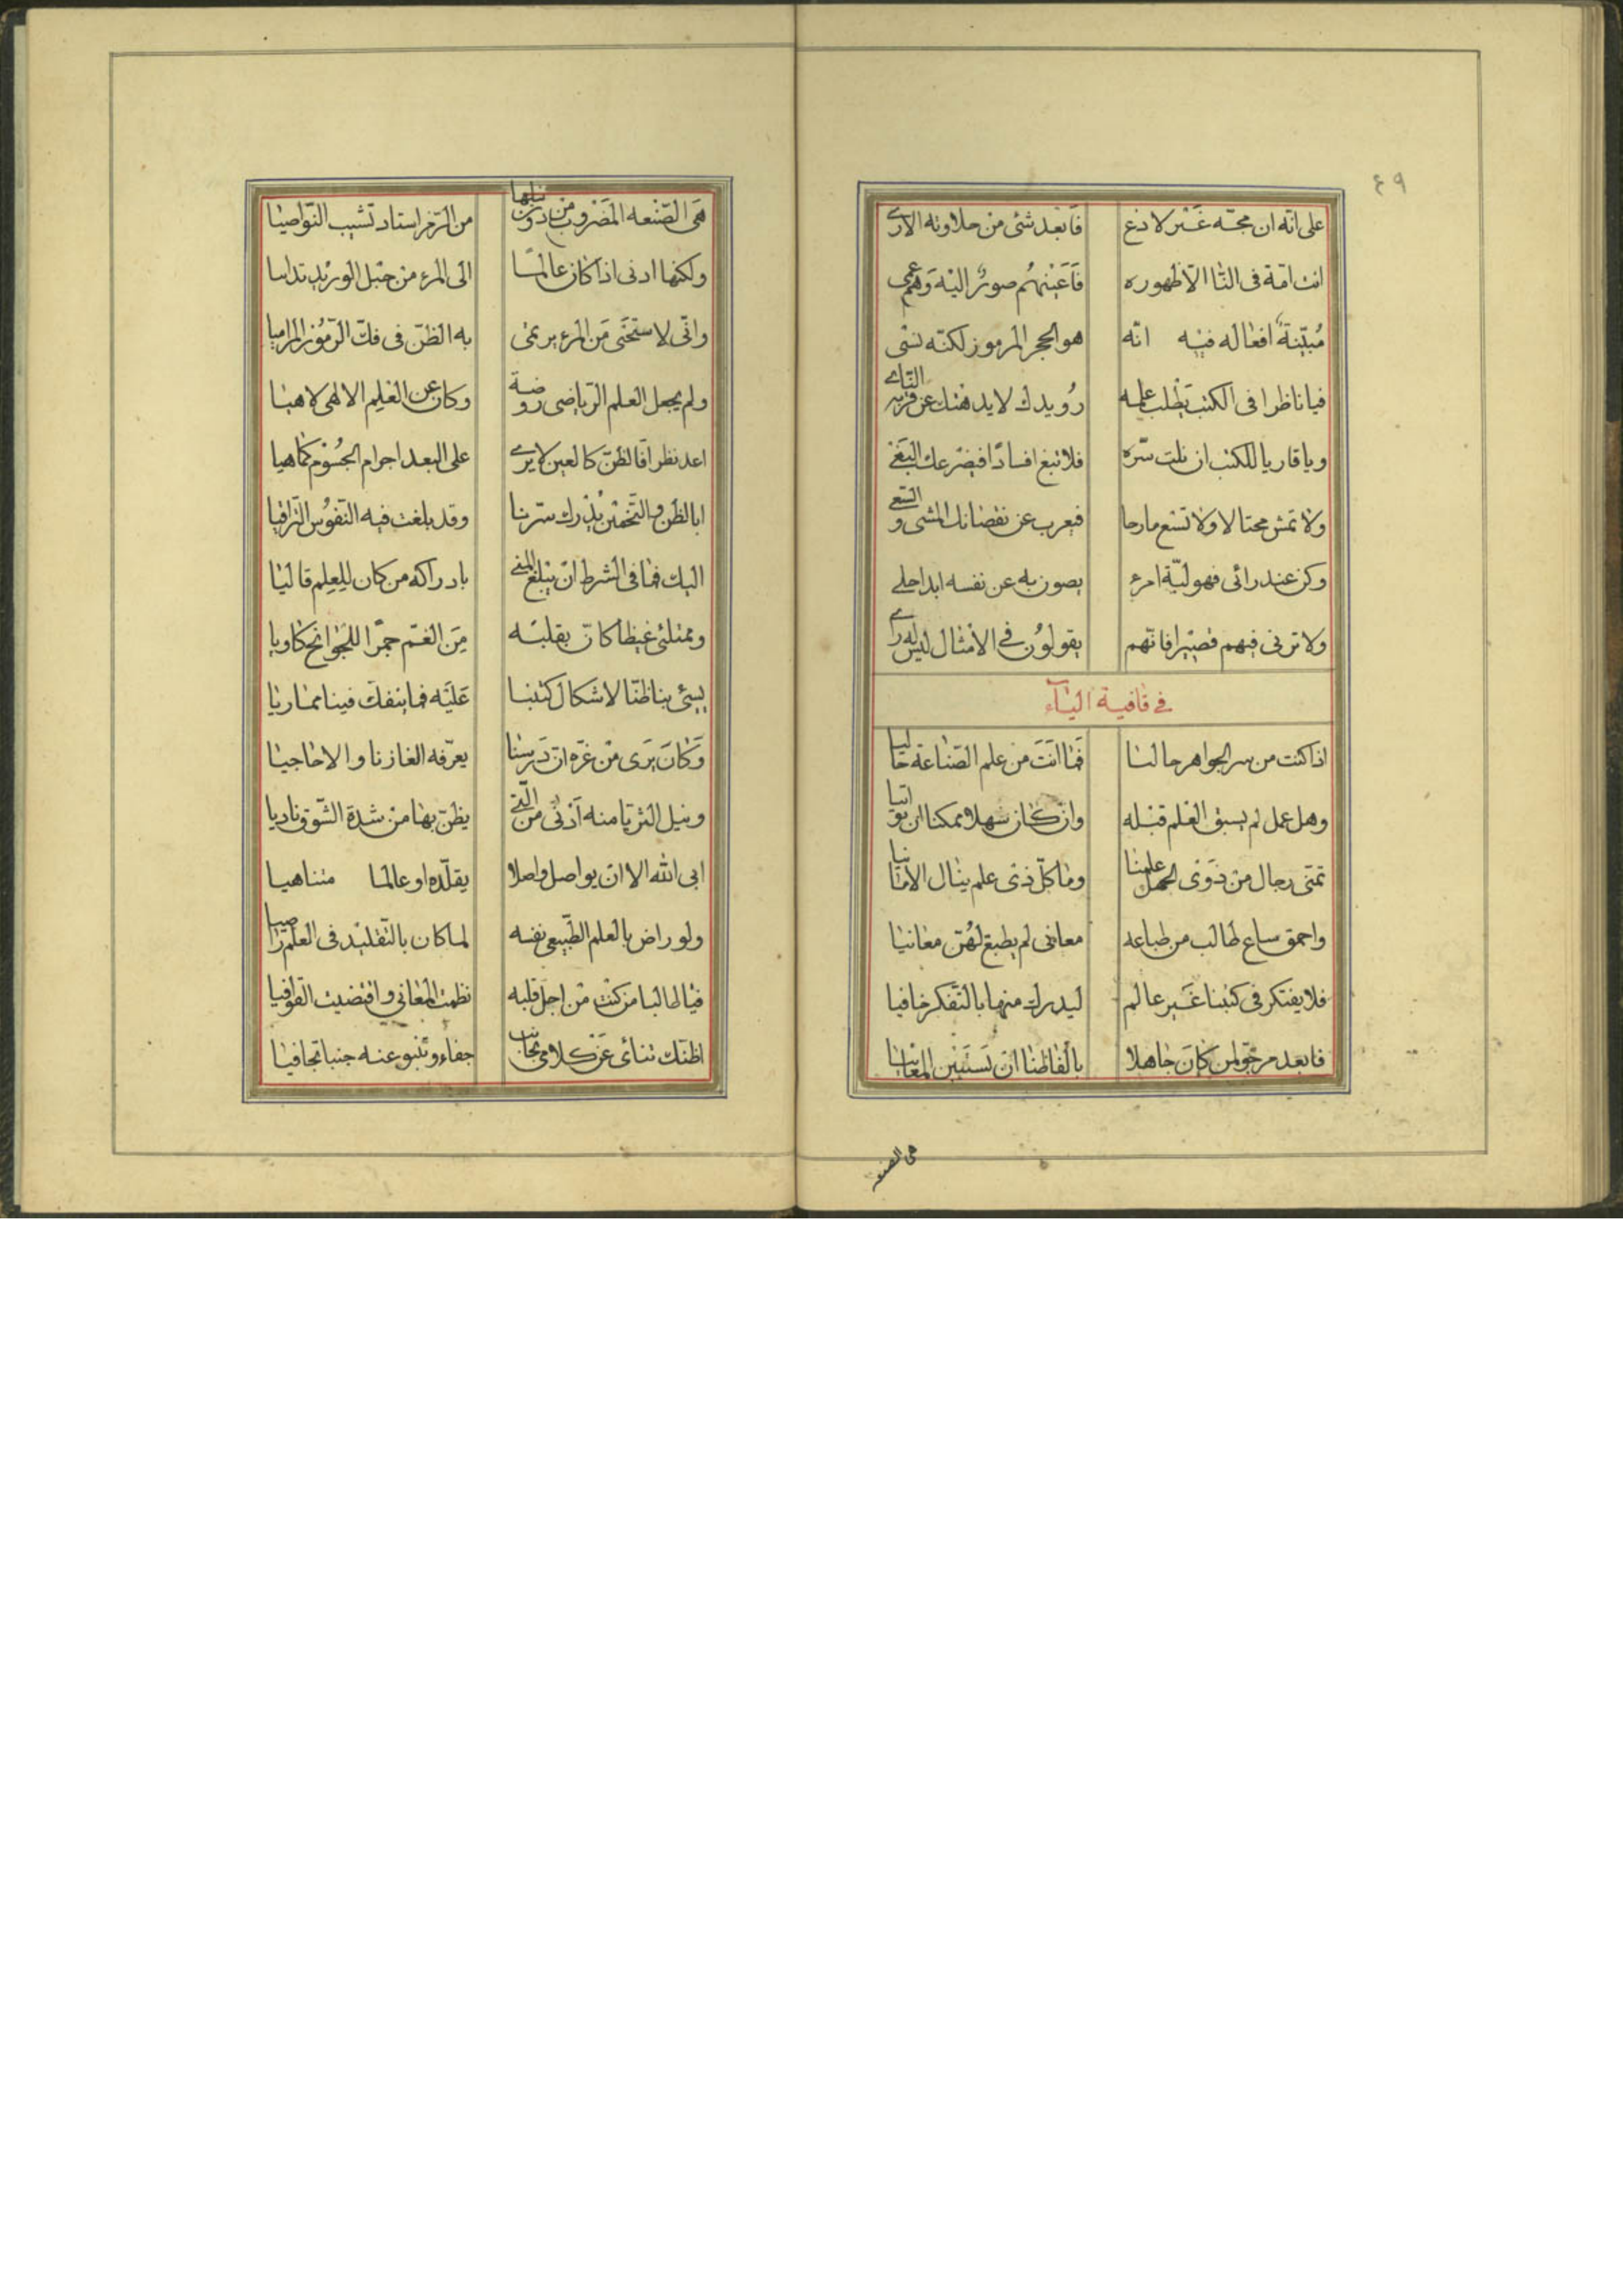 ٤٩
على انّه ان مجّه غَير لاذع فَابعَد شئ من حلاوته الارى
انت امّة فى التا الّا ظهوره فَاَعينهُم صورٌ اليه وَهم عمى
مُبيّنةٌ افعاله فيه انّه هو الحجر المرموز لكنّه نسى
فيا ناظرا فى الكتب يطلب علمه رُويدك لا يدهشك عن قربه الناى
ويا قاريا للكتب ان نلت سرّه فلا تبغ افسادًا فيصرعك البَغى
ولا تمش مختالا ولا تسع مارحا فيعرب عن نقصانك المشى والسّعى
وكن عند رائى فهو ليّة امرء يصون به عن نفسه ابدا حلى
ولا ترنى فيهم قصيرا فانّهم يقولُون فى الامثال ليس له راى
فى قافية الياء
اذا كنت من سر الجواهر جاليا فَما انتَ من علم الصّناعة خاليا
وهل عمل لم يسبق العلم قبله وان كان سهلا ممكنا ان يواتيا
تمنّى رجال من ذَوى الجهل علمنا وما كلّ ذى علم ينال الامانيا
واحمق ساع طالب من طباعه معانى لم يطبع لهُنّ معانيا
فلا يفتكر فى كتبنا غَير عالم ليدرك منها بالتّفكر خافيا
فابعد مرجّو لمن كانَ جاهلا بالفاظنا ان تَستبين المعانيا
هى الصنعه
هَى الصّنعه المضروب من دون نيلها من الرّمز استاد تشيب النّواصيا
ولكنها ادنى اذا كان عالمًا الى المرء من حَبل الوريد تدانيا
وانّى لاستحَيى مَن المرء يرتمى به الظنّ فى فكّ الرّمُوز المراميا
ولم يجعل العلم الرّياضى روضة وكان عن العلم الالهى لاهيا
اعد نظرا فالظنّ كالعين لا يرى على البعد اجرام الجسُوم كما هيا
ابا لظّن والتّخمين يُدرك سرّنا وقد بلغت فيه النّفوُس التّراقيا
اليك فما فى الشرط ان يبلغ المنى بادراكه من كان للعلم قاليا
وممتلئ غيظا كانّ بقلبه مَن الغمّ جمرًا للجَوانح كاويا
يسئ بنا ظنّا لاشكال كتبنا عَليه فما ينفكّ فينا مماريا
وَكانَ يَرى من غرّه ان دَرسنا يعرّفه الغازنا والاحاجيا
ونيل الثريّا منه اَدنى من الّتى يظنّ بها من شدة الشّوق ناديا
ابى الله الا ان يواصل واصلا يقلّده او عالما متناهيا
ولو راض بالعلم الطّبيعى نفسه لما كان بالتّقليد فى العلم راضيا
فيا طالبا من كنت من اجل قلبه نظمت المعانى واقتضيت القوافيا
اظنّك تنائ عَن كلامى بجانب جفاء وتنبو عنه جنبا تجافيا